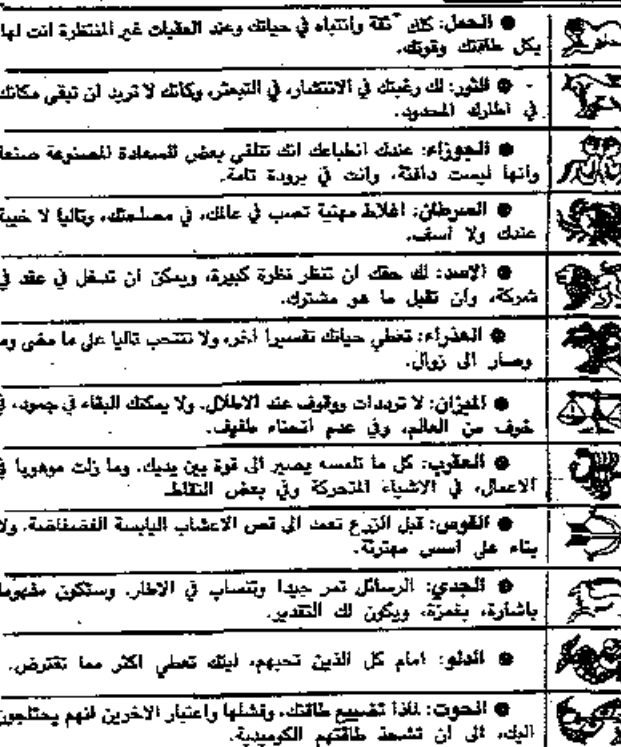 ● الحمل: كلك ثقة وانتباه في حياتك وعند العقبات غير المنتظرة انت لها
بكل طاقتك وقوتك.
● الثور: لك رغبتك في الانتشار، في التبعثر، وكأنك لا تريد ان تبقى مكانك
في اطارك المحدود.
● الجوزاء: عندك انطباعك انك تتلقى بعض السعادة المصنوعة صنعا
وانها ليست دافئة، وانت في برودة تامة.
● السرطان: اغلاط مهنية تصب في عالك، في مصلحتك، وتاليا لا خيبة
عندك ولا اسف.
● الاسد: لك حقك ان تنظر نظرة كبيرة، ويمكن ان تدخل في عقد في
شركة، وان تقبل ما هو مشترك.
● العذراء: تعطي حياتك تفسيرا آخر، ولا تنتحب تاليا على ما مضى وما
وصار الى زوال.
● الميزان: لا ترددات ووقوف عند الاطلال. ولا يمكنك البقاء في جمود، في
خوف من العالم، وفي عدم انحناء طفيف.
● العقرب: كل ما تلمسه يصير الى قوة بين يديك. وما زلت موهوبا في
الاعمال، في الاشياء المتحركة وفي بعض النقاط.
● القوس: قبل الزرع تعمد الى قص الاعشاب اليابسة الفضفاضة. ولا
بناء على اسس مهترئة.
● الجدي: الرسائل تمر جيدا وتنساب في الاطار. وستكون مفهوما
باشارة، بغمزة، ويكون لك التقدير.
● الدلو: امام كل الذين تحبهم، ليتك تعطي اكثر مما تقترض.
● الحوت: لماذا تضييع طاقتك، وفشلها واعتبار الاخرين انهم يحتاجون
اليك، الى ان تشحذ طاقتهم الكوميدية.